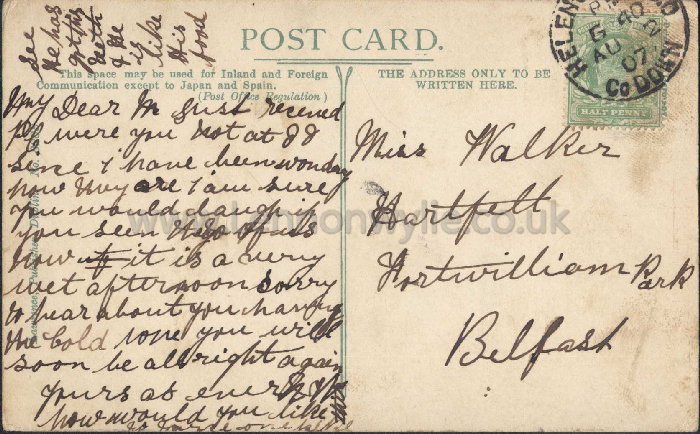 See
He has
got his
teeth
& he
is
like
His
food
POST CARD.
This space may be used for Inland and Foreign
Communication except to Japan and Spain.
(Post Office Regulation)
THE ADDRESS ONLY TO BE
WRITTEN HERE.
HELEN
5 40 PM
AU
07
Co DOWN
HALF PENNY
My Dear M Just received
PC were you not at
Since I have been wondering
how they are I am sure
you would laugh if
you seen the two of us
Now it is a very
wet afternoon sorry
to hear about you having
the Cold hope you will
soon be all right again
yours at ever
how would you like
to have one
Miss Walker
Hartfell
Fortwilliam Park
Belfast
www.Lennonwylie.co.uk